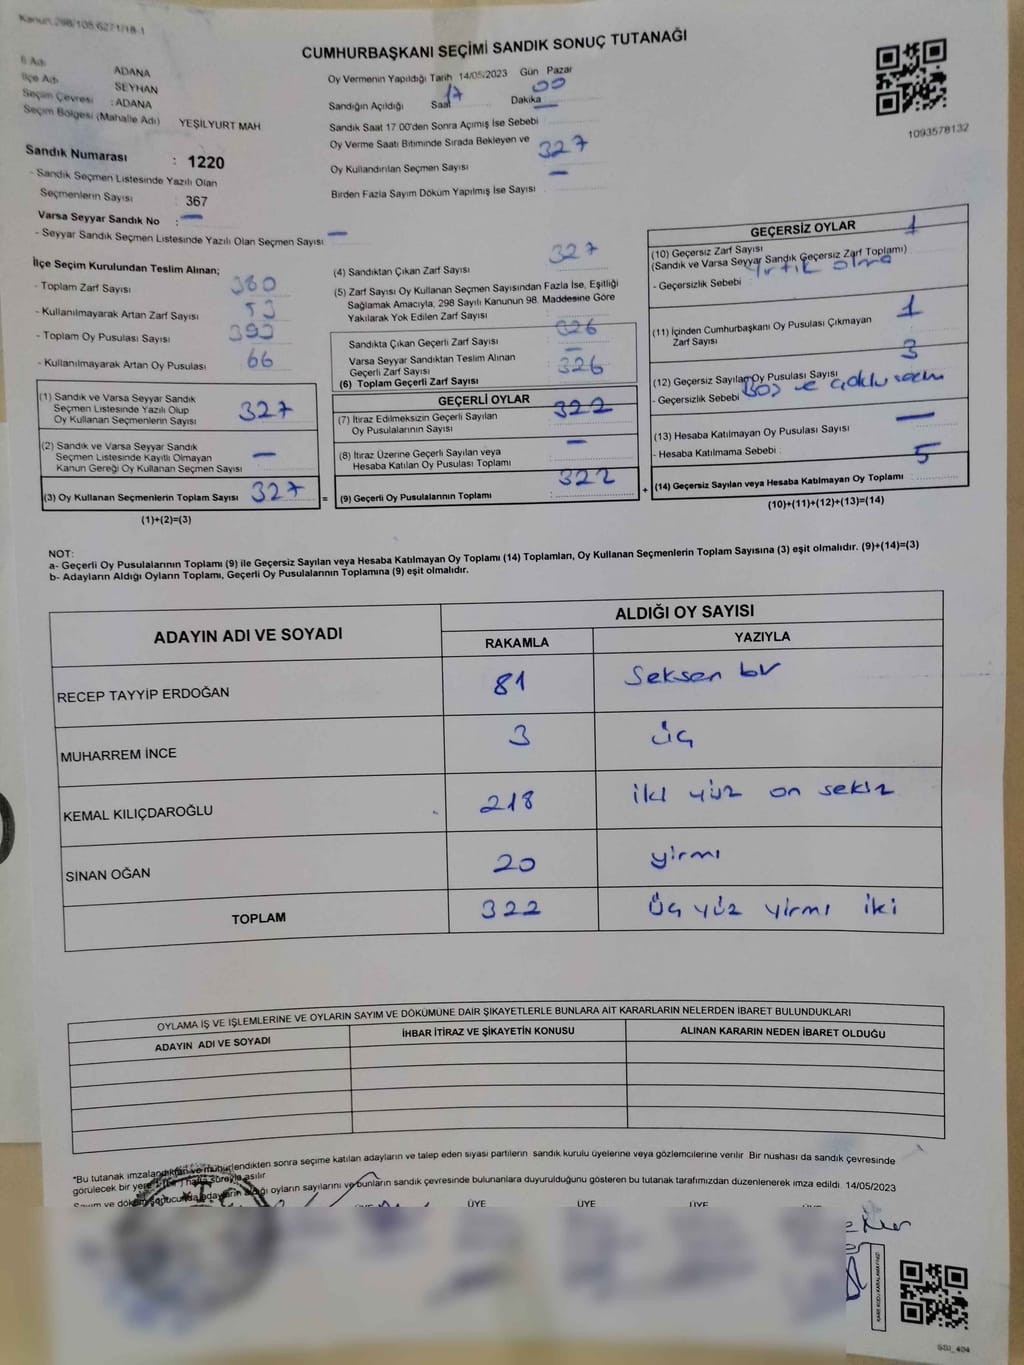 Kanun 298/105,6271/18-1
CUMHURBAŞKANI SEÇİMİ SANDIK SONUÇ TUTANAĞI
İl Adı ADANA
İlçe Adı SEYHAN
Seçim Çevresi : ADANA
Seçim Bölgesi (Mahalle Adı) YEŞİLYURT MAH
Sandık Numarası : 1220
- Sandık Seçmen Listesinde Yazılı Olan
Seçmenlerin Sayısı 367
Varsa Seyyar Sandık No : —
- Seyyar Sandık Seçmen Listesinde Yazılı Olan Seçmen Sayısı —
Oy Vermenin Yapıldığı Tarih 14/05/2023 Gün Pazar
Sandığın Açıldığı Saat 17 Dakika 00
Sandık Saat 17 00'den Sonra Açımış İse Sebebi —
Oy Verme Saati Bitiminde Sırada Bekleyen ve
Oy Kullandırılan Seçmen Sayısı 327
Birden Fazla Sayım Döküm Yapılmış İse Sayısı —
1093578132
İlçe Seçim Kurulundan Teslim Alınan;
- Toplam Zarf Sayısı 380
- Kullanılmayarak Artan Zarf Sayısı 53
- Toplam Oy Pusulası Sayısı
- Kullanılmayarak Artan Oy Pusulası 66
(1) Sandık ve Varsa Seyyar Sandık
Seçmen Listesinde Yazılı Olup
Oy Kullanan Seçmenlerin Sayısı 327
(2) Sandık ve Varsa Seyyar Sandık
Seçmen Listesinde Kayıtlı Olmayan
Kanun Gereği Oy Kullanan Seçmen Sayısı —
(3) Oy Kullanan Seçmenlerin Toplam Sayısı 327 =
(1)+(2)=(3)
(4) Sandıktan Çıkan Zarf Sayısı 327
(5) Zarf Sayısı Oy Kullanan Seçmen Sayısından Fazla İse, Eşitliği
Sağlamak Amacıyla, 298 Sayılı Kanunun 98. Maddesine Göre
Yakılarak Yok Edilen Zarf Sayısı
Sandıkta Çıkan Geçerli Zarf Sayısı 326
Varsa Seyyar Sandıktan Teslim Alınan
Geçerli Zarf Sayısı —
(6) Toplam Geçerli Zarf Sayısı 326
GEÇERLİ OYLAR
(7) İtiraz Edilmeksizin Geçerli Sayılan
Oy Pusulalarının Sayısı 322
(8) İtiraz Üzerine Geçerli Sayılan veya
Hesaba Katılan Oy Pusulası Toplamı —
(9) Geçerli Oy Pusulalarının Toplamı 322 +
GEÇERSİZ OYLAR
(10) Geçersiz Zarf Sayısı 1
(Sandık ve Varsa Seyyar Sandık Geçersiz Zarf Toplamı)
- Geçersizlik Sebebi yırtık olma
(11) İçinden Cumhurbaşkanı Oy Pusulası Çıkmayan
Zarf Sayısı 1
(12) Geçersiz Sayılan Oy Pusulası Sayısı 3
- Geçersizlik Sebebi Boş ve
(13) Hesaba Katılmayan Oy Pusulası Sayısı —
- Hesaba Katılmama Sebebi
(14) Geçersiz Sayılan veya Hesaba Katılmayan Oy Toplamı 5
(10)+(11)+(12)+(13)=(14)
NOT:
a- Geçerli Oy Pusulalarının Toplamı (9) ile Geçersiz Sayılan veya Hesaba Katılmayan Oy Toplamı (14) Toplamları, Oy Kullanan Seçmenlerin Toplam Sayısına (3) eşit olmalıdır. (9)+(14)=(3)
b- Adayların Aldığı Oyların Toplamı, Geçerli Oy Pusulalarının Toplamına (9) eşit olmalıdır.
ADAYIN ADI VE SOYADI ALDIĞI OY SAYISI
RAKAMLA YAZIYLA
RECEP TAYYİP ERDOĞAN 81 Seksen bir
MUHARREM İNCE 3 üç
KEMAL KILIÇDAROĞLU 218 iki yüz on sekiz
SİNAN OĞAN 20 yirmi
TOPLAM 322 üç yüz yirmi iki
OYLAMA İŞ VE İŞLEMLERINE VE OYLARIN SAYIM VE DÖKÜMÜNE DAİR ŞİKAYETLERLE BUNLARA AİT KARARLARIN NELERDEN İBARET BULUNDUKLARI
ADAYIN ADI VE SOYADI İHBAR İTİRAZ VE ŞİKAYETİN KONUSU ALINAN KARARIN NEDEN İBARET OLDUĞU
*Bu tutanak imzalandıktan ve mühürlendikten sonra seçime katılan adayların ve talep eden siyasi partilerin sandık kurulu üyelerine veya gözlemcilerine verilir Bir nüshası da sandık çevresinde
görülecek bir yere hafta süreyle asılır
Sayım ve döküm sonucunda adayların aldığı oyların sayılarını ve bunların sandık çevresinde bulunanlara duyurulduğunu gösteren bu tutanak tarafımızdan düzenlenerek imza edildi. 14/05/2023
ÜYE ÜYE ÜYE